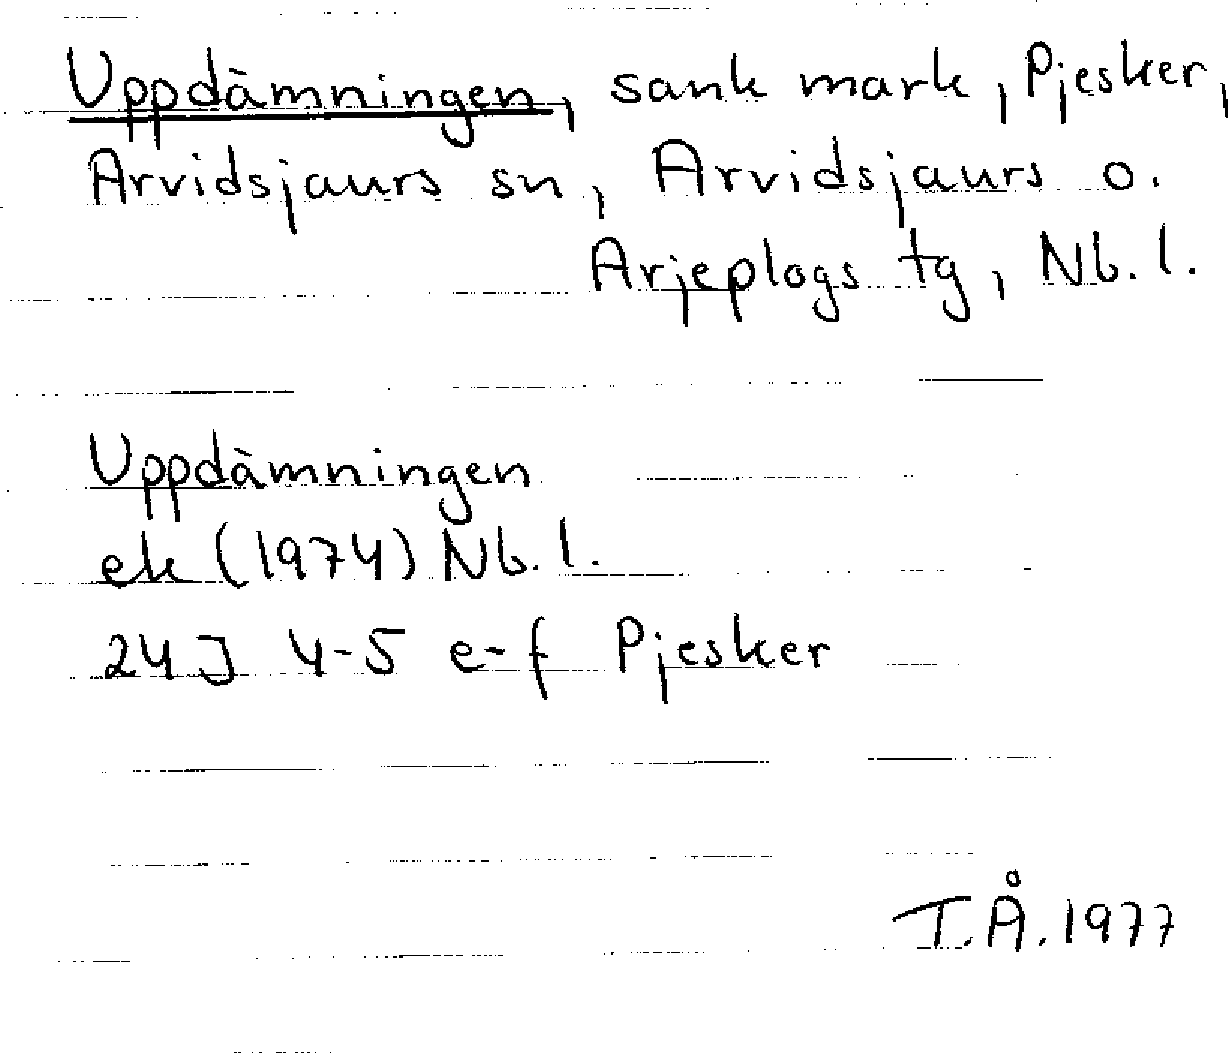 Uppdämningen, sank mark, Pjesker,
Arvidsjaurs sn, Arvidsjaurs o.
Arjeplogs tg, Nb. l.
Uppdämningen
ek (1974) Nb. l.
24J 4-5 e-f Pjesker
T.Å. 1977